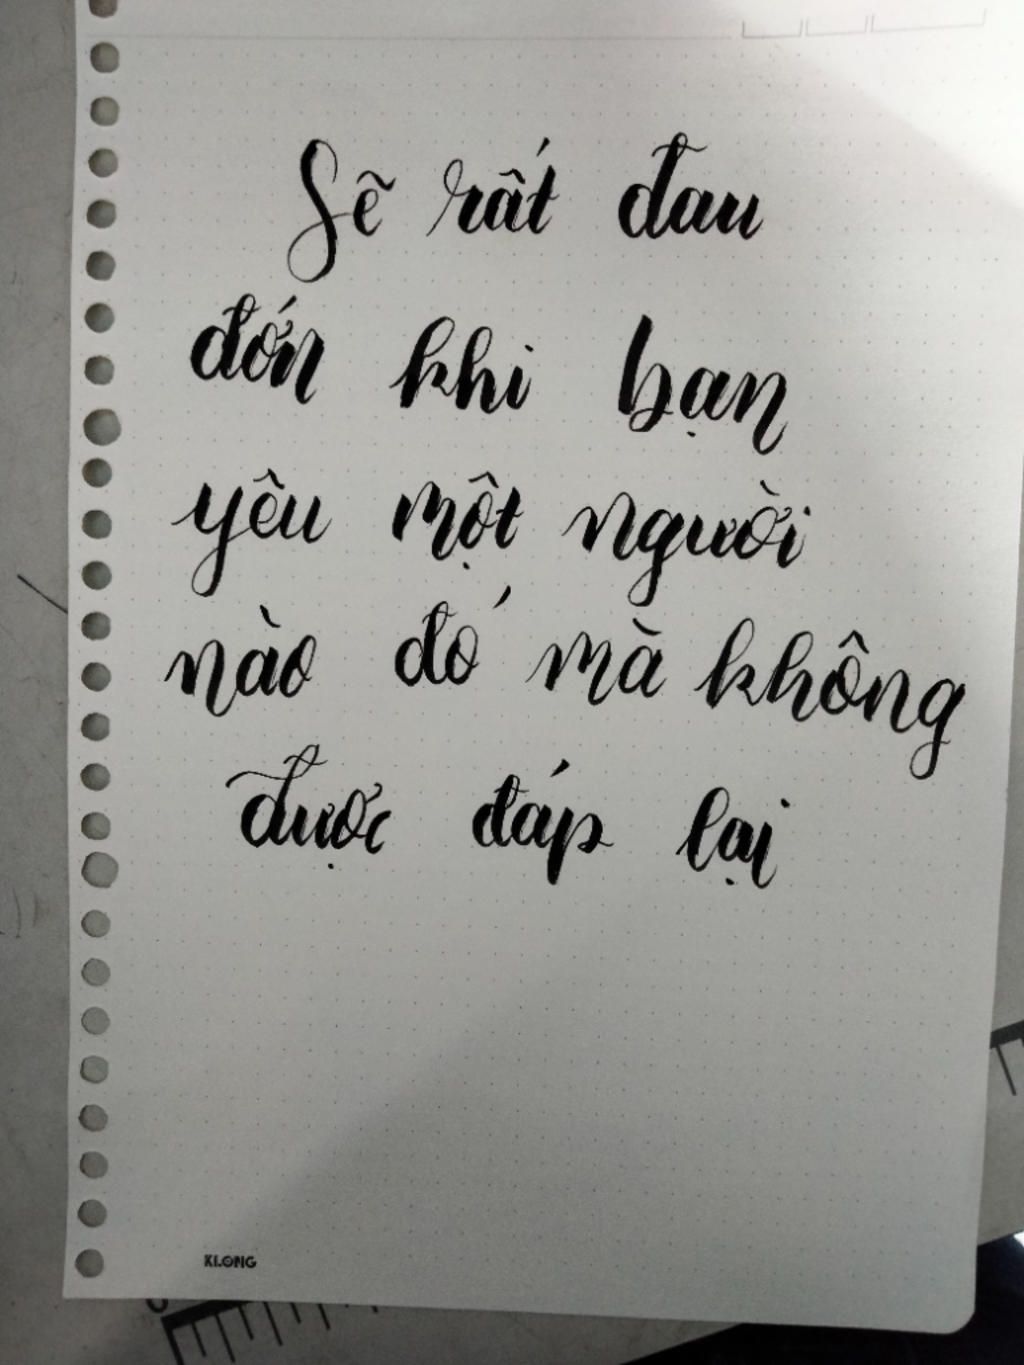 Sẽ rất đau
đớn khi bạn
yêu một người
nào đó mà không
được đáp lại
KLONG